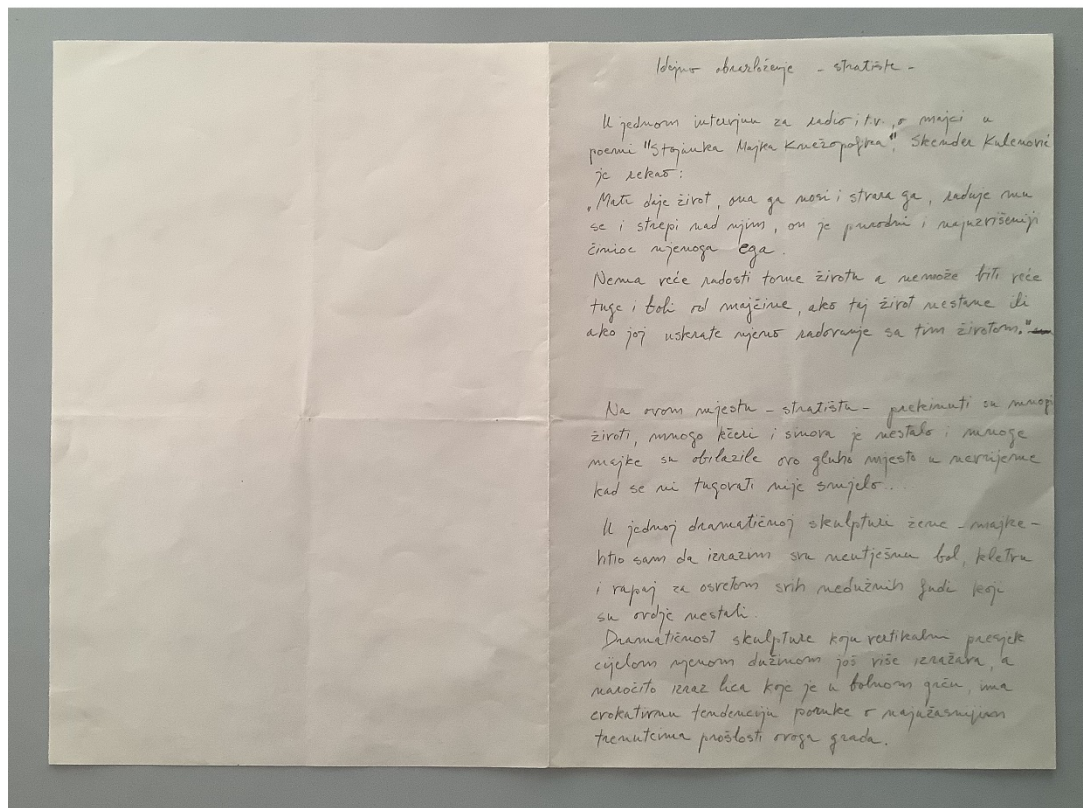 Idejno obrazloženje - stratište -
U jednom intervjuu za radio i t.v., o majci u
poemi "Stojanka Majka Knežopoljka", Skender Kulenović
je rekao:
"Mati daje život, ona ga nosi i stvara ga, raduje mu
se i strepi nad njim, on je prirodni i najuzvišeniji
činioc njenoga ega.
Nema veće radosti tome životu a nemože biti veće
tuge i boli od majčine, ako taj život nestane ili
ako joj uskrate njeno radovanje sa tim životom."
Na ovom mjestu - stratištu - prekinuti su mnogi
životi, mnogo kćeri i sinova je nestalo i mnoge
majke su obilazile ovo gluho mjesto u nevrijeme
kad se ni tugovati nije smjelo..
U jednoj dramatičnoj skulpturi žene - majke -
htio sam da izrazim svu neutješnu bol, kletvu
i vapaj za osvetom svih nedužnih ljudi koji
su ovdje nestali.
Dramatičnost skulpture koju vertikalni presjek
cijelom njenom dužinom još više izražava, a
naročito izraz lica koje je u bolnom grču, ima
evokativnu tendenciju poruke o najužasnijim
trenutcima prošlosti ovoga grada.